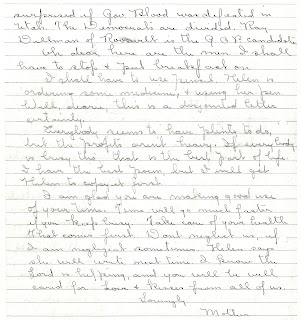 surprised of Gov Blood was defeated in
Utah. The Democrats are divided. Ray
Dillman of Roosevelt is the G.O.P. candidate.
Oh dear here are the men I shall
have to stop & put breakfast on
I shall have to use pencil. Helen is
ordering some medicine, & using her pen
Well, dears, this is a disjointed letter
certainly.
Everybody seems to have plenty to do,
but the profits aren't heavy. If everybody
is busy tho' that is the best part of life.
I have the last poem, but I will get
Helen to copy it first
I am glad you are making good use
of your time. Time will go much faster
if you keep busy. Take care of your health
that comes first. Don't neglect us, if
I am negligent sometimes. Helen says
she will write next time I know the
Lord is helping, and you will be well
cared for. Love & kisses from all of us.
Lovingly
Mother